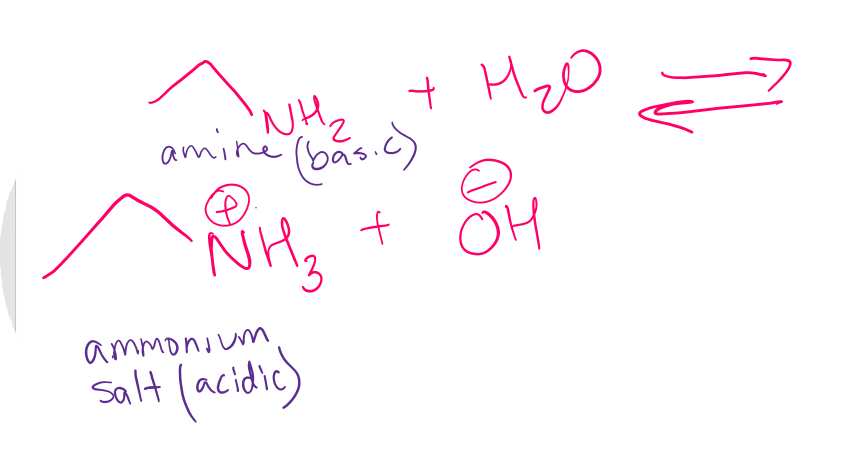 NH₂ + H₂O ⇌
amine (basic)
⊕ ⊖
NH₃ + OH
ammonium
salt (acidic)